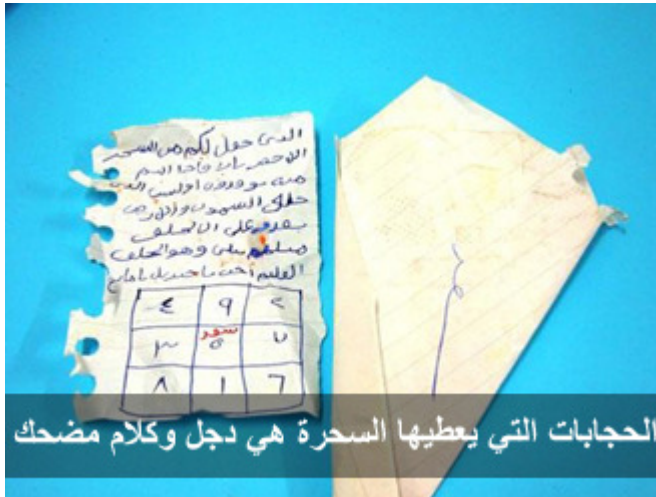 الذى جعل لكم من الشجر
الاخضر نارا فاذا انتم
منه توقدون اوليس الذى
خلق السموت والارض
بقدر على ان يخلق
مثلهم بلى وهو الخلق
العليم أجب يا جبريل
٢ ٩ ٤
٧ ٥ ٣
٦ ١ ٨
الحجابات التي يعطيها السحرة هي دجل وكلام مضحك